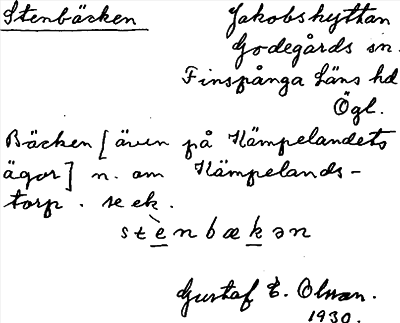 Stenbäcken Jakobshyttan
Godegårds sn.
Finspånga Läns hd
Ögl.
Bäcken [även på Kämpelandets
ägor] n. om Kämpelands-
torp. se ek.
stènbækən
Gustaf E. Olsson.
1930.